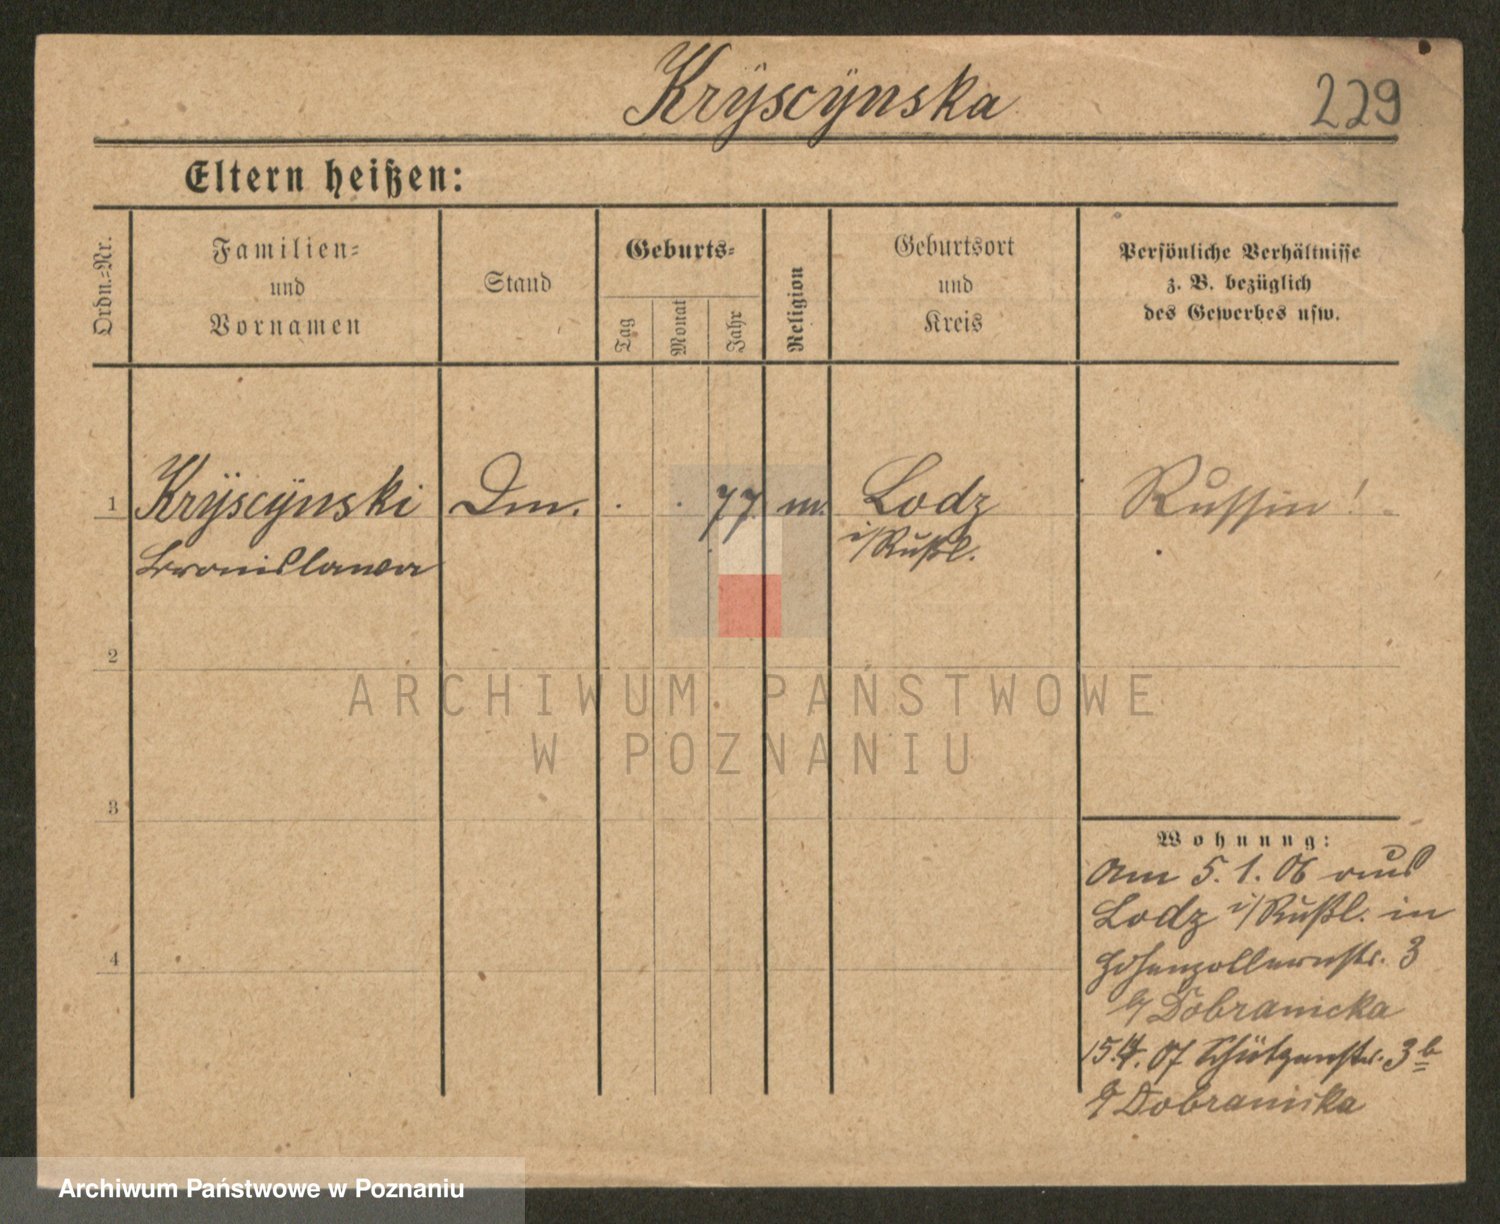 Krÿscÿnska
229
Eltern heißen:
Ordn.-Nr.
Familien-
und
Vornamen
Stand
Geburts-
Tag
Monat
Jahr
Religion
Geburtsort
und
Kreis
Persönliche Verhältnisse
z. B. bezüglich
des Gewerbes usw.
1 Krÿscÿnski Dm. . . 77 m. Lodz Russin!
Bronislawa i/Rußl.
2
3
4
Wohnung:
Am 5. 1. 06 aus
Lodz i/Rußl. in
Hohenzollernstr. 3
b/ Dobranicka
15.4. 07 Schützenstr. 3b
b/ Dobranicka
ARCHIWUM PAŃSTWOWE
W POZNANIU
Archiwum Państwowe w Poznaniu